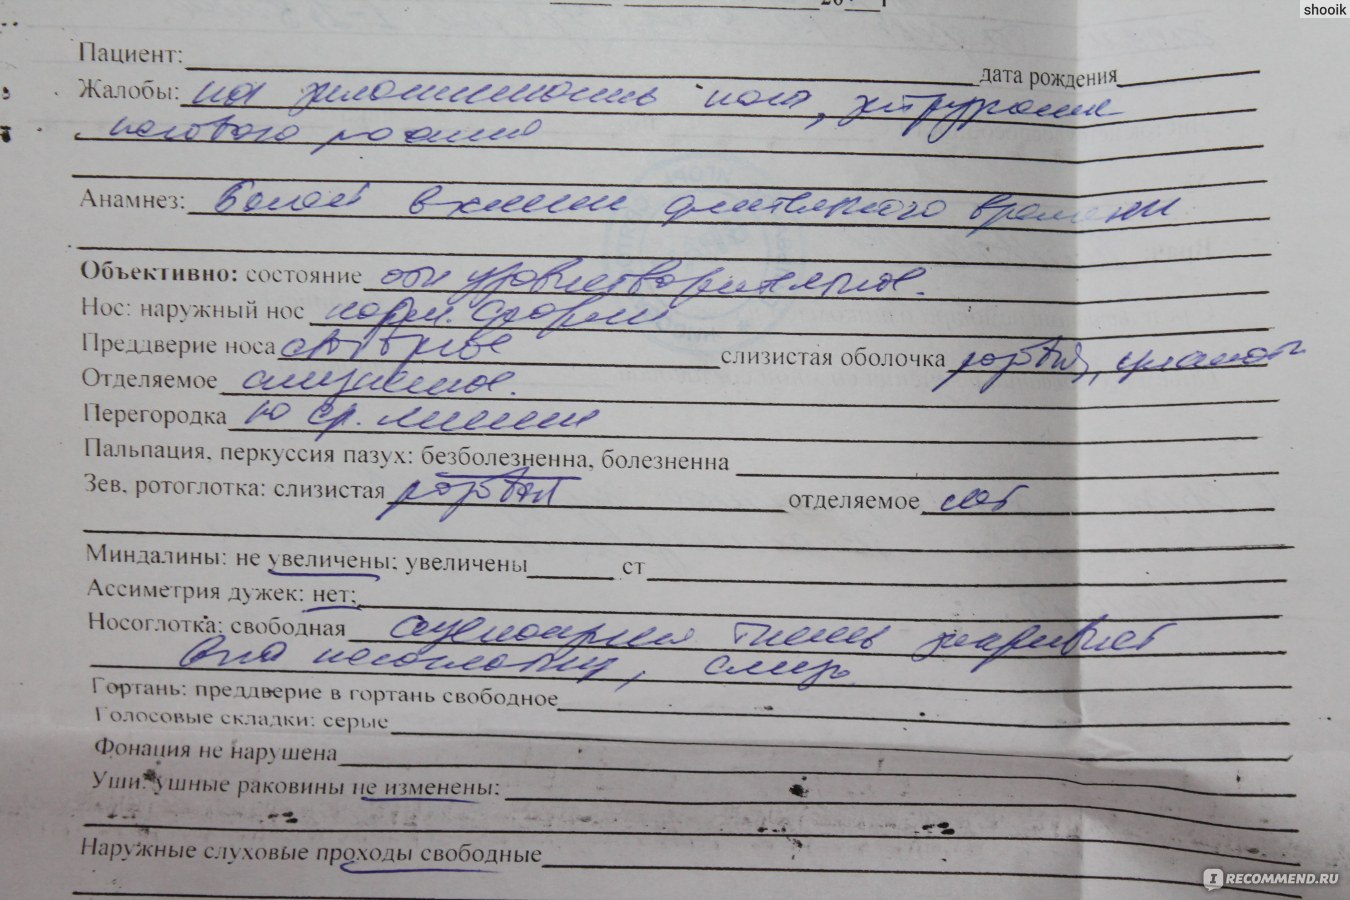 shooik
20 г
Пациент: дата рождения
Жалобы: на заложенность носа, затруднение
носового дыхания
Анамнез: Болеет в течении длительного времени
Объективно: состояние удовлетворительное.
Нос: наружный нос норм. формы
Преддверие носа свободное слизистая оболочка розовая,
Отделяемое слизистое.
Перегородка по ср. линии
Пальпация, перкуссия пазух: безболезненна, болезненна
Зев, ротоглотка: слизистая розовая отделяемое нет
Миндалины: не увеличены; увеличены ст
Ассиметрия дужек: нет;
Носоглотка: свободная аденоидная ткань закрывает
носоглотки, слизь
Гортань: преддверие в гортань свободное
Голосовые складки: серые
Фонация не нарушена
Уши: ушные раковины не изменены:
Наружные слуховые проходы свободные
IRECOMMEND.RU